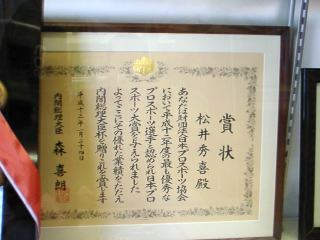 賞状
松井秀喜殿
あなたは財団法人日本プロスポーツ協会
において平成十二年度の最も優秀な
プロスポーツ選手と認められ日本プロ
スポーツ大賞を与えられました
よってここにその優れた業績をたたえ
内閣総理大臣杯を贈りこれを賞します
平成十二年十二月二十四日
内閣総理大臣 森喜朗